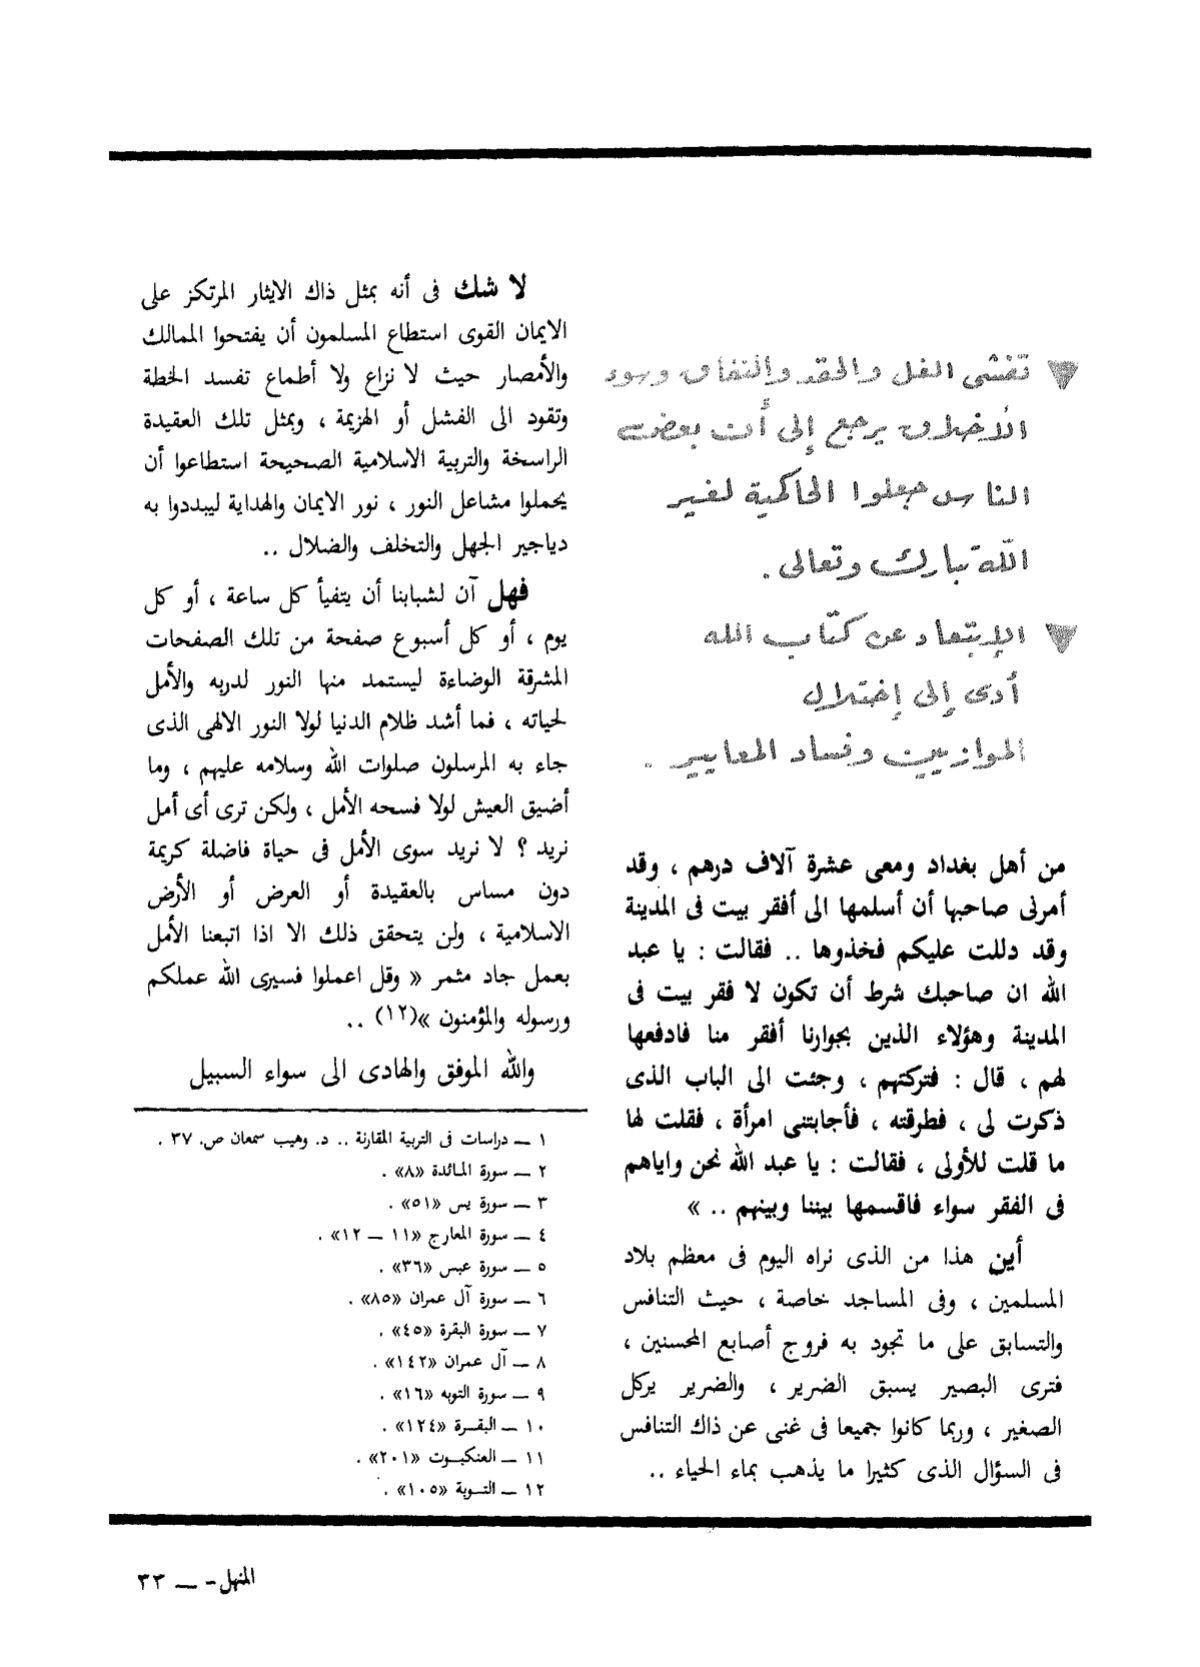 ▼ تفشى الغل والحقد والنفاق وسوء
الأخلاق يرجع إلى أن بعض
الناس جعلوا الحاكمية لغير
الله تبارك وتعالى .
▼ الإبتعاد عن كتاب الله
أدى إلى إختلال
الموازين وفساد المعايير .
من أهل بغداد ومعى عشرة آلاف درهم ، وقد
أمرنى صاحبها أن أسلمها الى أفقر بيت فى المدينة
وقد دللت عليكم فخذوها .. فقالت : يا عبد
الله ان صاحبك شرط أن تكون لا فقر بيت فى
المدينة وهؤلاء الذين بجوارنا أفقر منا فادفعها
لهم ، قال : فتركتهم ، وجئت الى الباب الذى
ذكرت لى ، فطرقته ، فأجابتنى امرأة ، فقلت لها
ما قلت للأولى ، فقالت : يا عبد الله نحن واياهم
فى الفقر سواء فاقسمها بيننا وبينهم .. »
أين هذا من الذى نراه اليوم فى معظم بلاد
المسلمين ، وفى المساجد خاصة ، حيث التنافس
والتسابق على ما تجود به فروج أصابع المحسنين ،
فترى البصير يسبق الضرير ، والضرير يركل
الصغير ، وربما كانوا جميعا فى غنى عن ذاك التنافس
فى السؤال الذى كثيرا ما يذهب بماء الحياء ..
لا شك فى أنه بمثل ذاك الايثار المرتكز على
الايمان القوى استطاع المسلمون أن يفتحوا الممالك
والأمصار حيث لا نزاع ولا أطماع تفسد الخطة
وتقود الى الفشل أو الهزيمة ، وبمثل تلك العقيدة
الراسخة والتربية الاسلامية الصحيحة استطاعوا أن
يحملوا مشاعل النور ، نور الايمان والهداية ليبددوا به
دياجير الجهل والتخلف والضلال ..
فهل آن لشبابنا أن يتفيأ كل ساعة ، أو كل
يوم ، أو كل أسبوع صفحة من تلك الصفحات
المشرقة الوضاءة ليستمد منها النور لدربه والأمل
لحياته ، فما أشد ظلام الدنيا لولا النور الالهى الذى
جاء به المرسلون صلوات الله وسلامه عليهم ، وما
أضيق العيش لولا فسحه الأمل ، ولكن ترى أى أمل
نريد ؟ لا نريد سوى الأمل فى حياة فاضلة كريمة
دون مساس بالعقيدة أو العرض أو الأرض
الاسلامية ، ولن يتحقق ذلك الا اذا اتبعنا الأمل
بعمل جاد مثمر « وقل اعملوا فسيرى الله عملكم
ورسوله والمؤمنون »(١٢) ..
والله الموفق والهادى الى سواء السبيل
١ ـ دراسات فى التربية المقارنة .. د. وهيب سمعان ص. ٣٧ .
٢ ـ سورة المائدة «٨» .
٣ ـ سورة يس «٥١» .
٤ ـ سورة المعارج «١١ ـ ١٢» .
٥ ـ سورة عبس «٣٦» .
٦ ـ سورة آل عمران «٨٥» .
٧ ـ سورة البقرة «٤٥» .
٨ ـ آل عمران «١٤٢» .
٩ ـ سورة التوبه «١٦» .
١٠ ـ البقـرة «١٢٤» .
١١ ـ العنكبـوت «٢٠١» .
١٢ ـ التـوبة «١٠٥» .
المنهل - ـ ٣٣